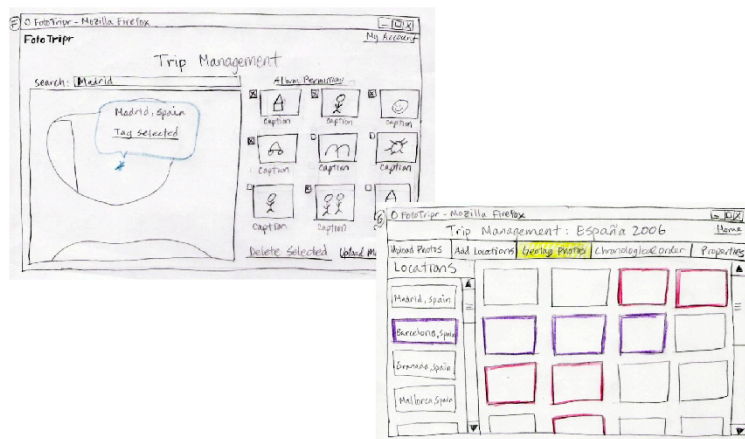 FotoTripr - Mozilla Firefox
FotoTripr
My Account
Trip Management
Search: Madrid
Album Permissions
Madrid, Spain
Tag Selected
caption caption caption
caption caption caption
caption caption
Delete Selected Upload
FotoTripr - Mozilla Firefox
Trip Management: España 2006
Home
Upload Photos Add Locations Geotag Photos Chronological Order Properties
Locations
Madrid, Spain
Barcelona, Spain
Granada, Spain
Mallorca, Spain